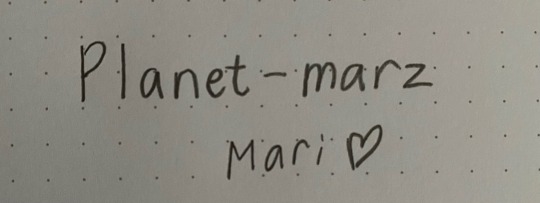 Planet-marz
Mari ♡